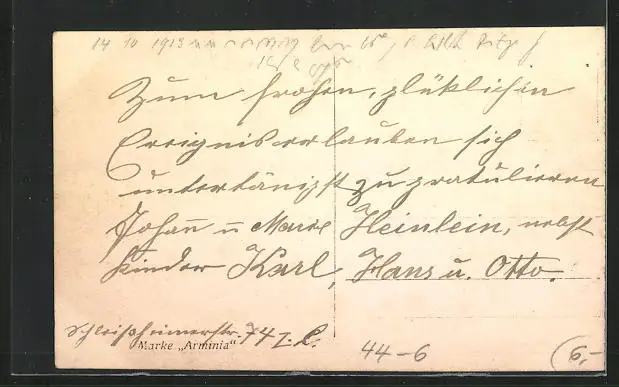 14 10 1913
Zum frohen, glüklichen
Ereignis erlauben sich
untertänigst zu gratulieren
Johann u Marie Heinlein, nebst
Kinder Karl, Hans u. Otto.
Schleißheimerstr. 74 I. l.
Marke „Arminia“
44-6
6,-